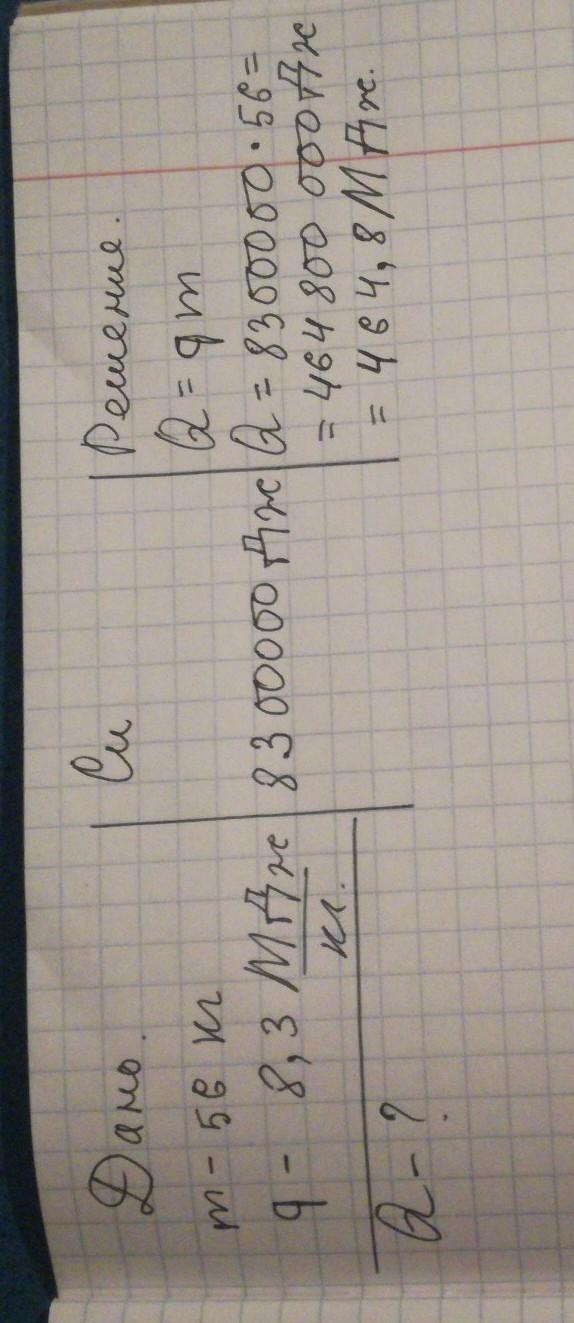 Дано.
m - 56 кг
q - 8,3 МДж
кг.
Q - ?
Си
8300000 Дж
Решение.
Q = qm
Q = 8300000 · 56 =
= 464 800 000 Дж
= 464,8 МДж.